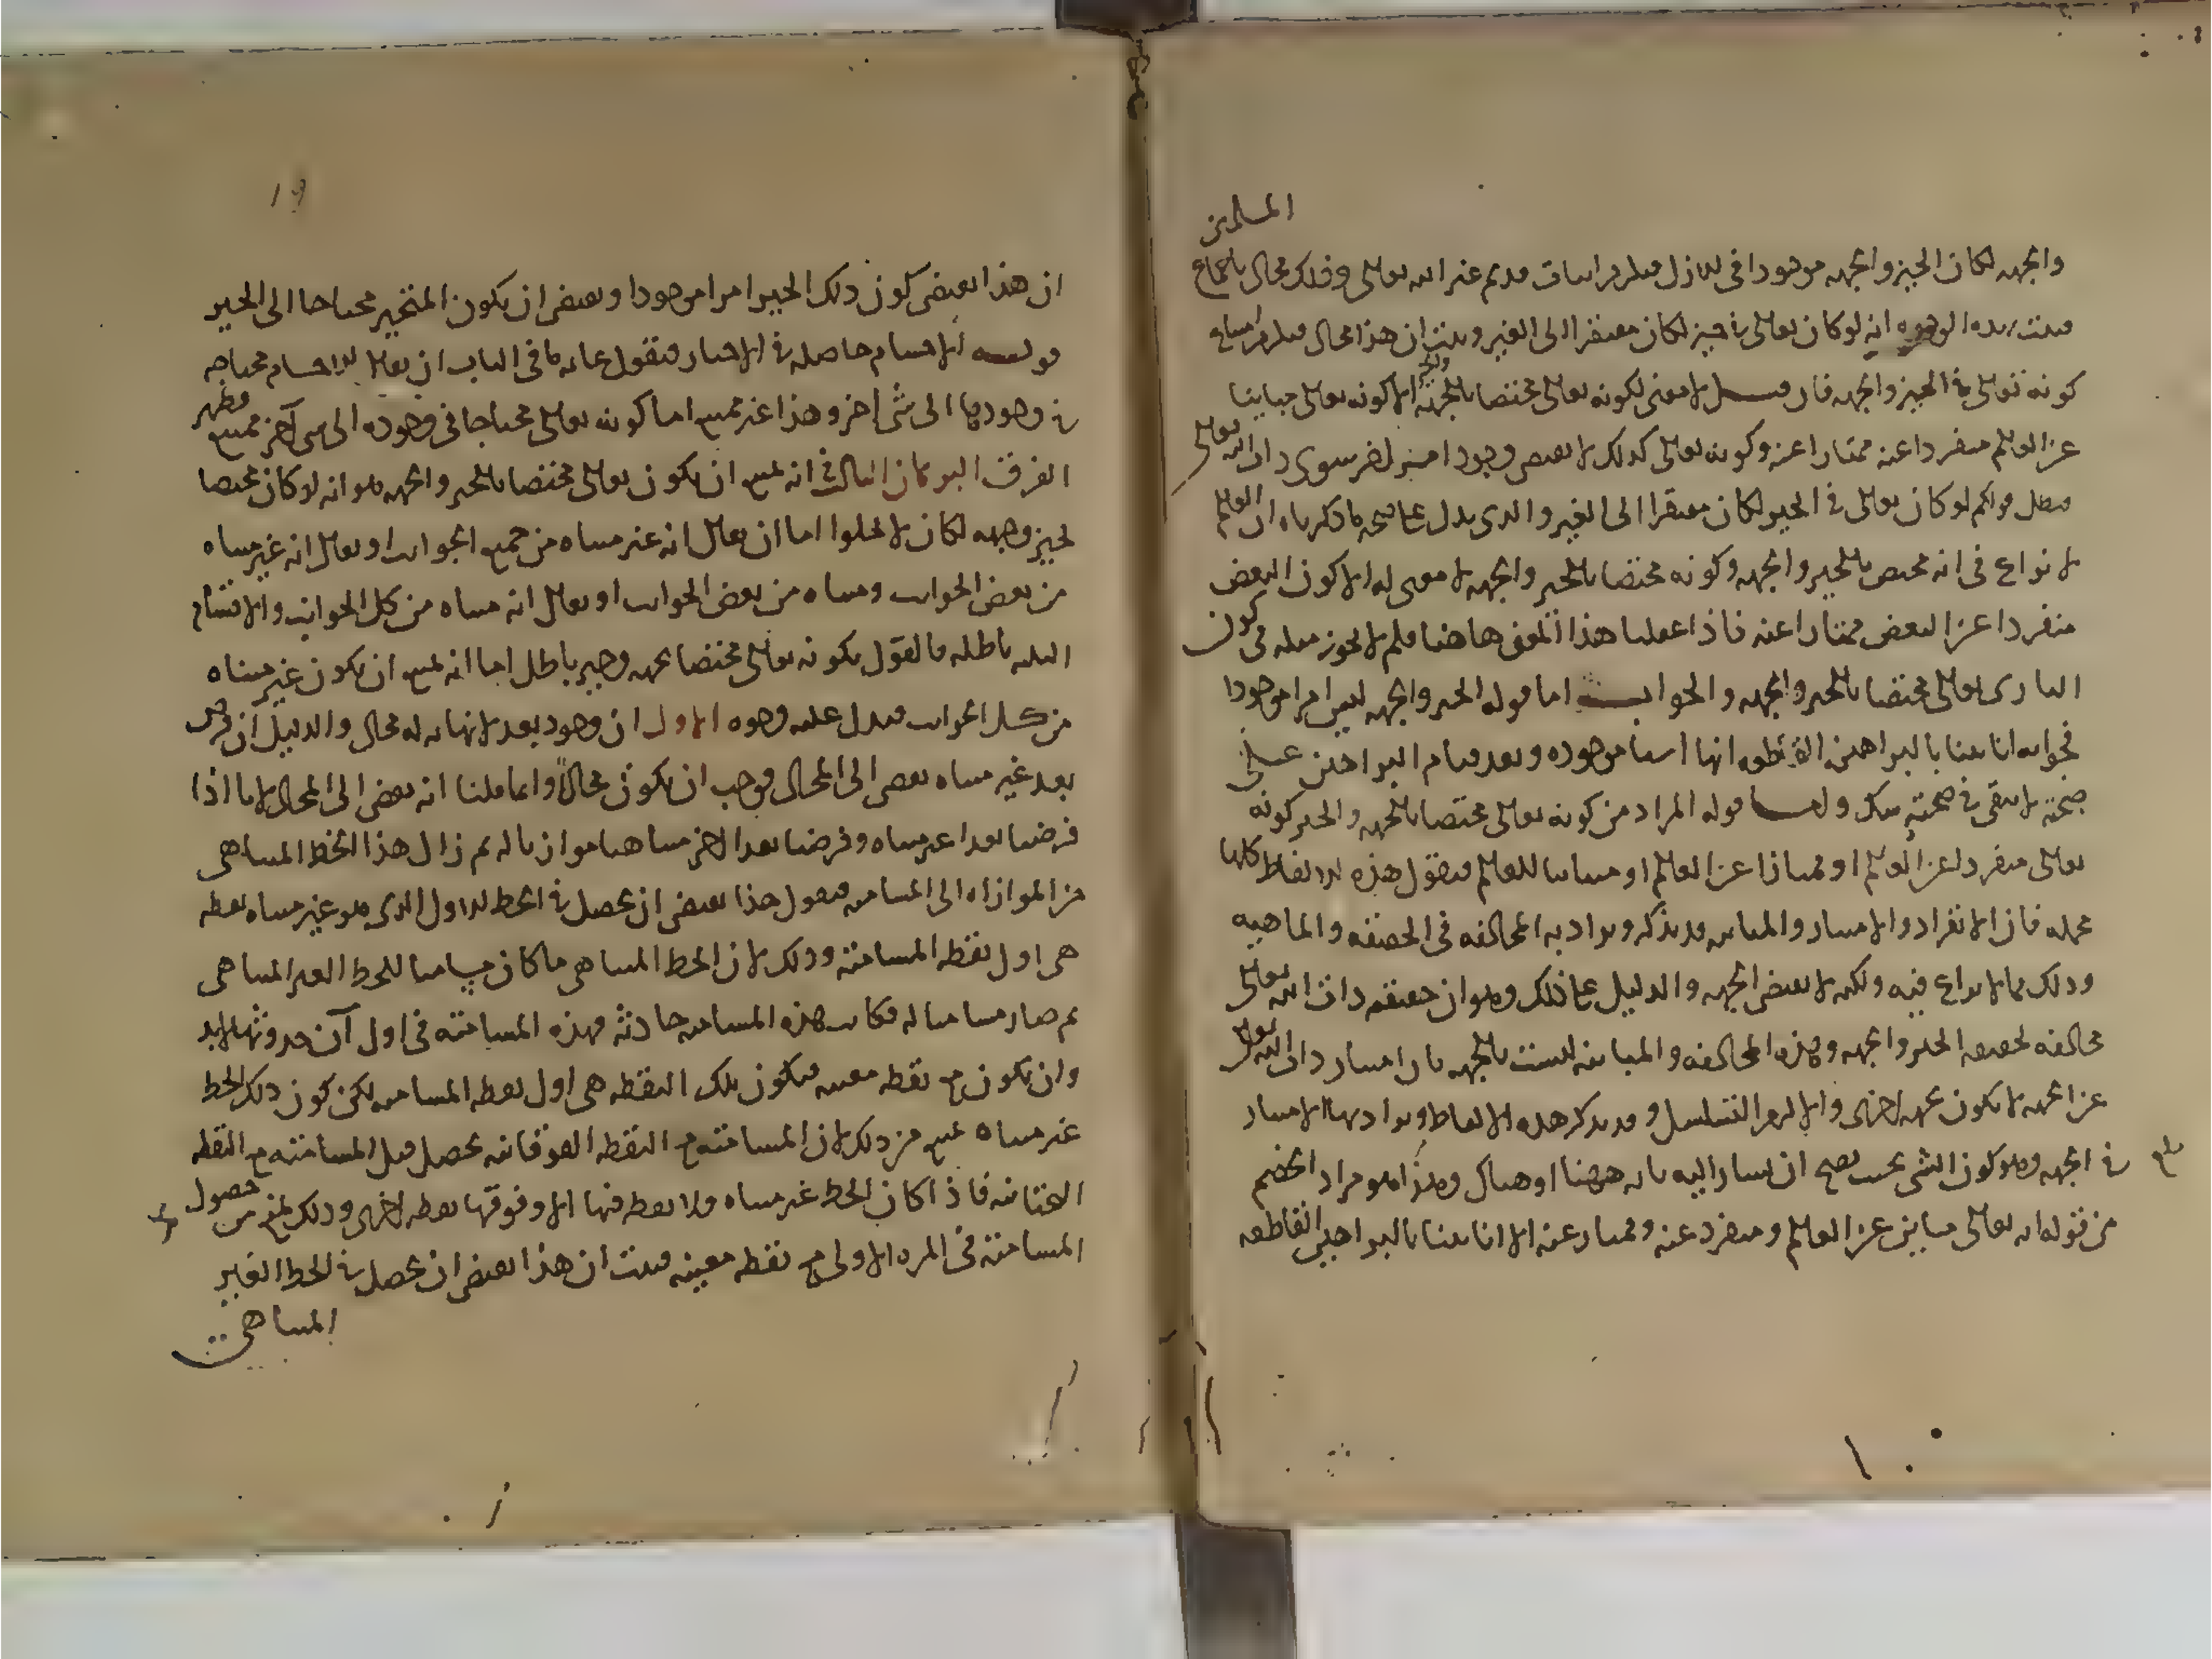 المسلمين
والجهه لكان الحيز والجهه موجودا فى الازل فيلزم اثبات قديم غير الله تعالى وذلك محال باجماع
فثبت بهذه الوجوه انه لو كان تعالى فى حيز لكان مفتقرا الى الغير وثبت ان هذا محال فيلزم امتناع
كونه تعالى فى الحيز والجهه فان قيل لا معنى لكونه تعالى مختصا بالجهة الا كونه تعالى مباينا
عن العالم منفردا عنه ممتازا عنه وكونه تعالى كذلك لا يقتضى وجود امر اخر سوى ذات الله تعالى
فبطل قولكم لو كان تعالى فى الحيز لكان مفتقرا الى الغير والذى يدل على صحة ما ذكرناه ان العالم
لا نزاع فى انه مختص بالحيز والجهه وكونه مختصا بالحيز والجهه لا معنى له الا كون البعض
منفردا عن البعض ممتازا عنه فاذا عقلنا هذا المعنى هاهنا فلم لا يجوز مثله فى كون
البارى تعالى مختصا بالحيز والجهه والجواب اما قوله الحيز والجهه ليس امرا موجودا
فجوابه انا بينا بالبراهين القاطعه انها اشيا موجوده وبعد قيام البراهين على
صحته لا يبقى فى صحته شك واما قوله المراد من كونه تعالى مختصا بالجهه والحيز كونه
تعالى منفردا عن العالم او ممتازا عن العالم او مباينا للعالم فنقول هذه الالفاظ كلها
مجمله فان الانفراد والامتياز والمباينه قد يذكر ويراد به المخالفه فى الحقيقه والماهيه
وذلك مما لا نزاع فيه ولكنه لا يقتضى الجهه والدليل على ذلك وهو ان حقيقه ذات الله تعالى
مخالفه لحقيقه الحيز والجهه وهذه المخالفه والمباينه ليست بالجهه فان امتياز ذات الله تعالى
عن الجهه لا يكون بجهه اخرى والا لزم التسلسل وقد يذكر هذه الالفاظ ويراد بها الامتياز
فى الجهه وهو كون الشى بحيث يصح ان يشار اليه بانه ههنا او هناك وهذا هو مراد الخصم
من قوله انه تعالى مباين عن العالم ومنفرد عنه وممتاز عنه الا انا بينا بالبراهين القاطعه
١٩
ان هذا يقتضى كون ذلك الحيز امرا موجودا ويقتضى ان يكون المتحيز محتاجا الى الحيز
قوله الاجسام حاصله فى الاحياز فنقول غايه ما فى الباب ان يقال الاجسام محتاجه
فى وجودها الى شى اخر وهذا غير ممتنع اما كونه تعالى محتاجا فى وجوده الى شى آخر ممتنع فظهر
الفرق البرهان الثالث فى انه يمتنع ان يكون تعالى مختصا بالحيز والجهه هو انه لو كان مختصا
بحيز وجهه لكان لا يخلوا اما ان يقال انه غير متناه من جميع الجوانب او يقال انه غير متناه
من بعض الجوانب ومتناه من بعض الجوانب او يقال انه متناه من كل الجوانب والاقسام
الثلثه باطله فالقول بكونه تعالى مختصا بجهه وحيز باطل اما انه يمتنع ان يكون غير متناه
من كل الجوانب فيدل عليه وجوه الاول ان وجود بعد لا نهايه له محال والدليل ان فرض
بعد غير متناه يفضى الى المحال فوجب ان يكون محالا وانما قلنا انه يفضى الى المحال لانا اذا
فرضنا بعدا غير متناه وفرضنا بعدا اخر متناهيا موازيا له ثم زال هذا الخط المتناهى
من الموازاه الى المسامته فنقول هذا يقتضى ان يحصل فى الخط الاول الذى هو غير متناه نقطه
هى اول نقطه المسامتة وذلك لان الخط المتناهى ما كان مسامتا للخط الغير المتناهى
ثم صار مسامتا له فكانت هذه المسامته حادثة فهذه المسامته فى اول آن حدوثها لا بد
وان يكون مع نقطه معينه فيكون تلك النقطه هى اول نقطه المسامته لكن كون ذلك الخط
غير متناه يمنع من ذلك لان المسامته مع النقطه الفوقانيه يحصل قبل المسامته مع النقطه
التحتانيه فاذا كان الخط غير متناه ولا نقطه فيها الا وفوقها نقطه اخرى وذلك يمنع من حصول
المسامتة فى المره الاولى مع نقطه معينه فثبت ان هذا يقتضى ان يحصل فى الخط الغير
المتناهى